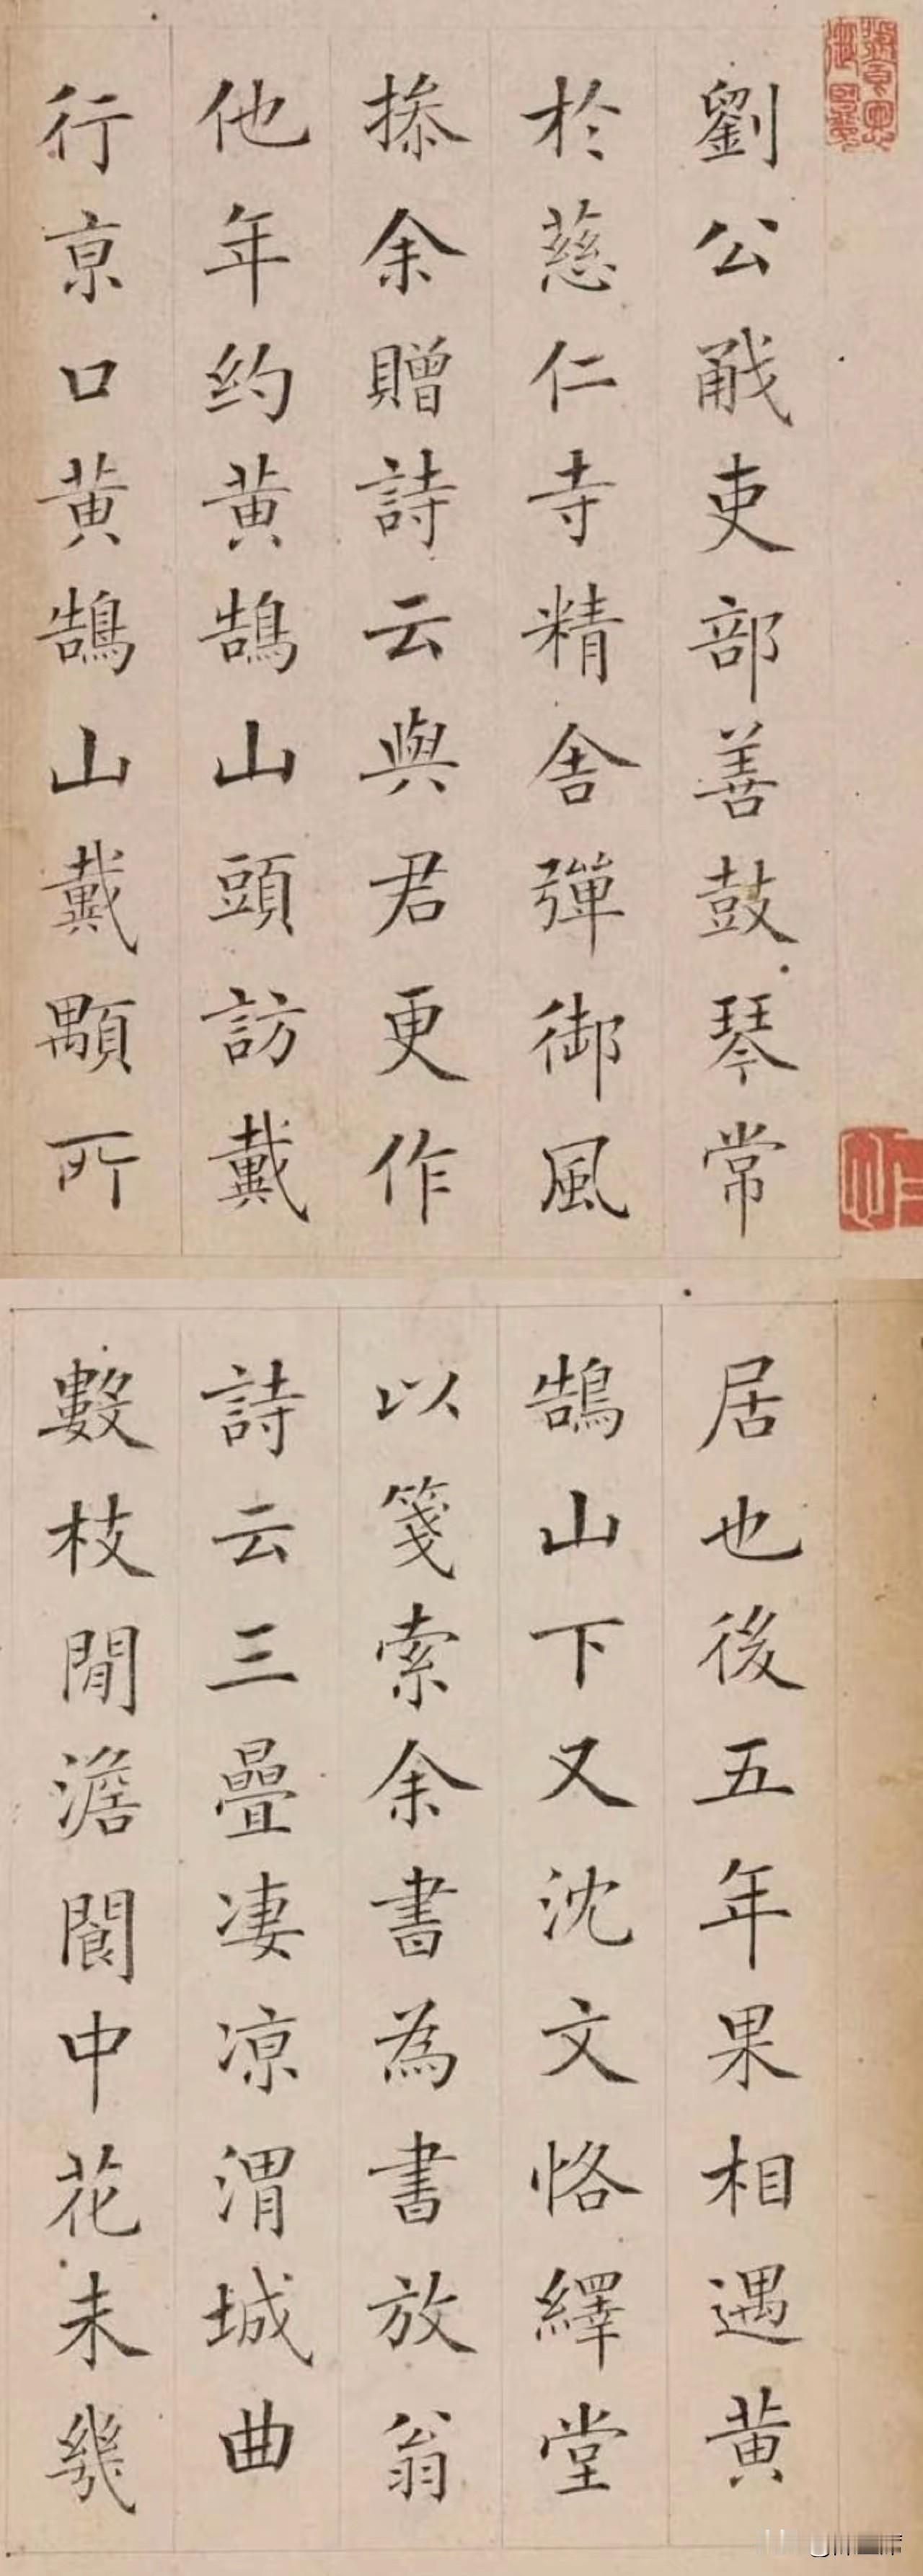 劉公㦷吏部善鼓琴常
於慈仁寺精舍彈御風
摻余贈詩云與君更作
他年約黄鵠山頭訪戴
行京口黄鵠山戴顒所
居也後五年果相遇黄
鵠山下又沈文恪繹堂
以箋索余書為書放翁
詩云三疊凄凉渭城曲
數枝閒澹閬中花未幾